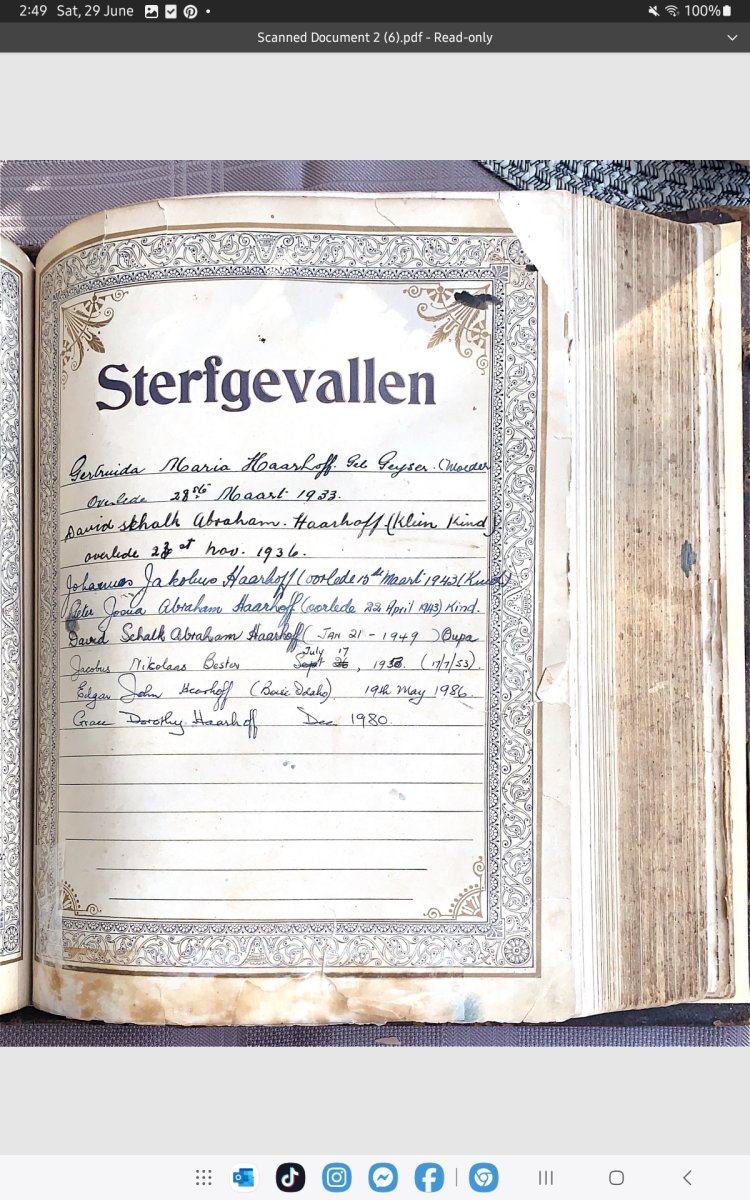 2:49 Sat, 29 June
100%
Scanned Document 2 (6).pdf - Read-only
Sterfgevallen
Gertruida Maria Haarhoff. Geb Geyser. (Moeder
Overlede 28ste Maart 1933.
David Schalk Abraham. Haarhoff (Klien Kind)
overlede st Nov. 1936.
Johannes Jakobus Haarhoff (oorlede 15de Maart 1942 (Kind)
Pieter Josua Abraham Haarhoff (oorlede 22 April 1943) Kind.
David Schalk Abraham Haarhoff (JAN 21 - 1949) Oupa
July 17
Jacobus Nikolaas Bester Sept 26, 1953. (17/7/53).
Edgar John Haarhoff 19th May 1986.
Grace Dorothy Haarhoff Dec 1980.